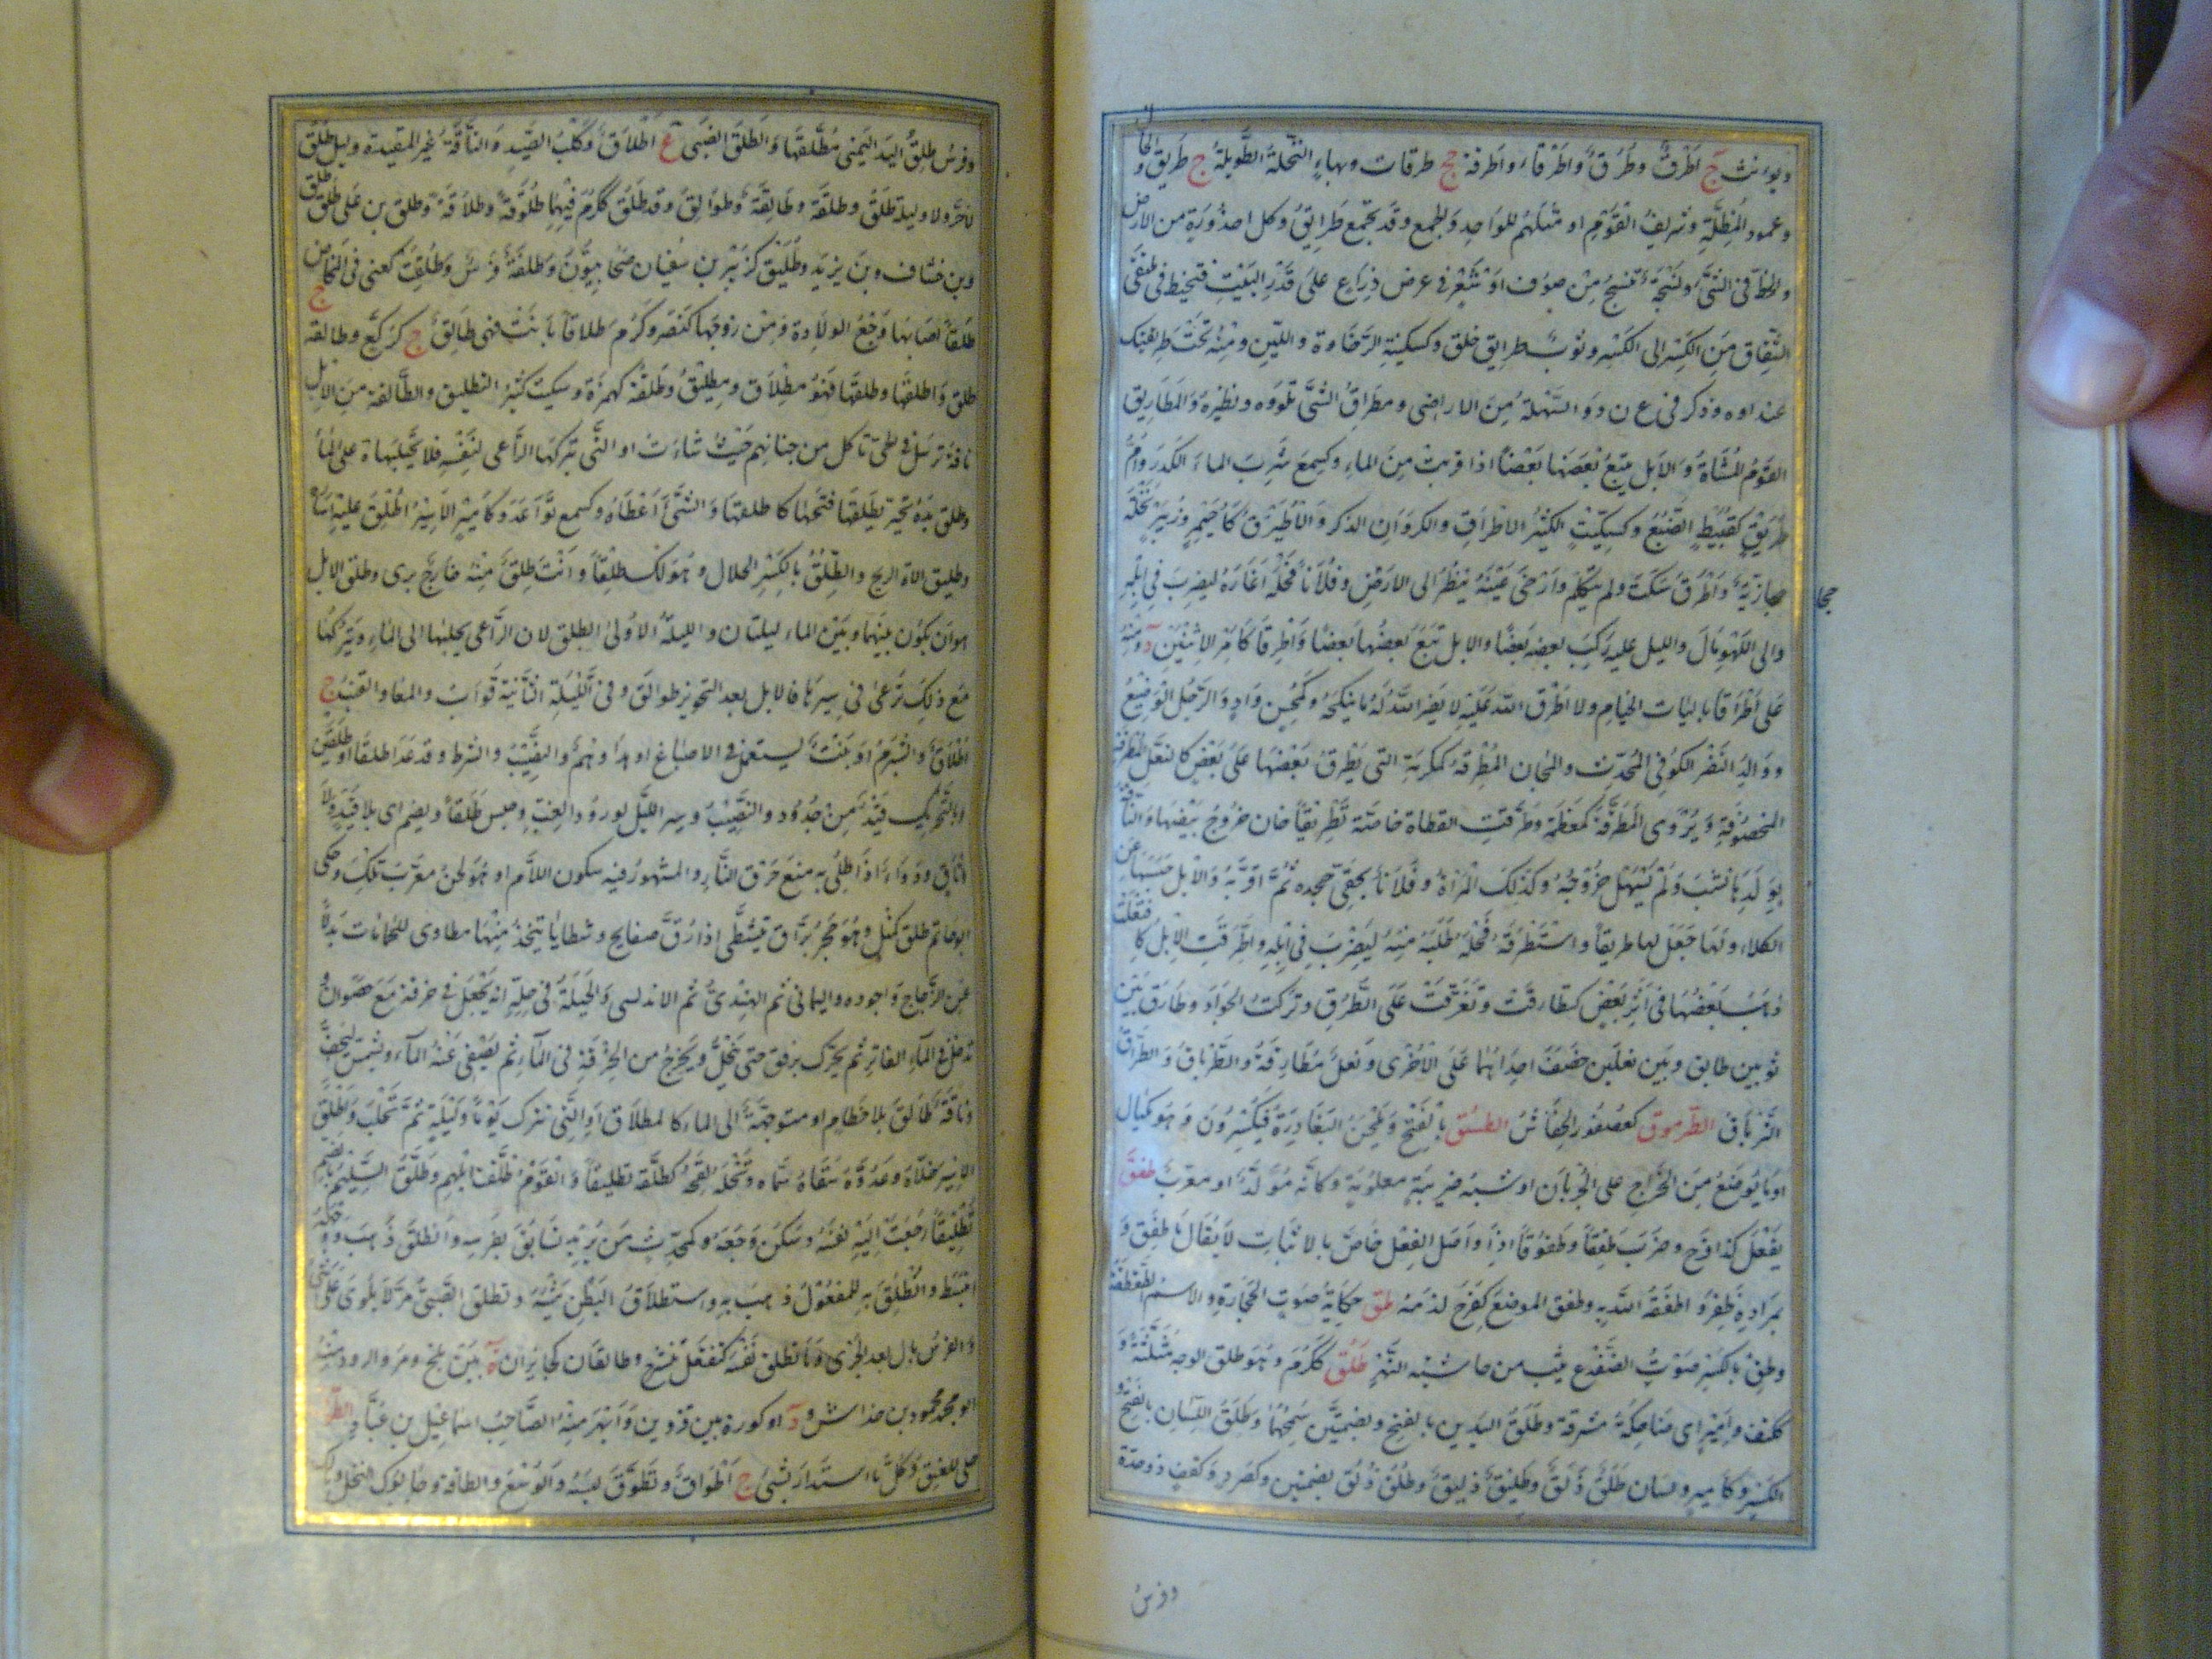 ويؤنث ج اطرق وطرق واطرقاء واطرقة جج طرقات وبهاء النخلة الطويلة ج طريق والحال
وعمود المظلة وشريف القوم او مثلهم للواحد والجمع وقد يجمع طرايق وكل احدورة من الارض
والخط فى الشئ ونسيجة تنسج من صوف او شعر فى عرض ذراع على قدر البيت فتخيط فى ملتقى
الشقاق من الكسر الى الكسر وثوب طرايق خلق وكسكينة الرخاوة واللين ومنه تحت طريقتك
عنداوه وذكر فى ع ن د و السهلة من الاراضى ومطراق الشئ تلوه ونظيره والمطاريق
القوم المشاة والابل يتبع بعضها بعضا اذا قربت من الماء وكسمع شرب الماء الكدر وام
طريق كقبيط الضبع وكسكيت الكثير الاطراق والكروان الذكر والاطيرق كاحيمر وزبير نخلة
حجازية واطرق سكت ولم يتكلم وارخى عينه ينظر الى الارض وفلانا فحله اعاره ليضرب فى ابله
حجا
والى اللهو مال والليل عليه ركب بعضه بعضا والابل تبع بعضها بعضا واطرقا كامر الاثنين د ومنه
على اطرقا باليات الخيام ولا اطرق الله عليه لا يصير الله له ما ينكحه وكمحسن واد والرجل الوضيع
ووالد النضر الكوفى المحدث والمجان المطرقة كمكرمة التى يطرق بعضها على بعض كالنعل المطرقة
المخصوفة ويروى المطرقة كمعظمة وطرقت القطاة خاصة تطريقا حان خروج بيضها والناقة
بولدها نشب ولم يسهل خروجه وكذلك المراة وفلان بحقى جحده ثم اقر به والابل حبسها عن
الكلاء ولها جعل لها طريقا واستطرقه فحله طلبه منه ليضرب فى ابله واطرقت الابل كافتعلت
ذهب بعضها فى اثر بعض كتطارقت وتفرقت على الطرق وتركت الجواد وطارق بين
ثوبين طابق وبين نعلين خصف احداهما على الاخرى ونعل مطارقة والطرياق والطراق
الترياق الطرموق كعصفور الخفاش الطسق بالفتح ويلحن البغاددة فيكسرون وهو مكيال
او ما يوضع من الخراج على الجربان او شبه ضريبة معلومة وكانه مولد او معرب طفق
يفعل كذا كفرح وضرب طفقا وطفوقا اذا واصل الفعل خاص بالاثبات لا يقال ما طفق و
بمراده ظفر واطفقه الله به وطفق الموضع كفرح لزمه طق حكاية صوت الحجارة والاسم الطقطقة
وطق بالكسر صوت الضفدع يثب من حاشية النهر طلق ككرم وهو طلق الوجه مثلثة و
ككتف وامير اى ضاحكه مشرقه وطلق اليدين بالفتح وبضمتين سمحهما وطلق اللسان بالفتح و
الكسر وكامير ولسان طلق ذلق وطليق ذليق وطلق ذلق بضمتين وكصرد وكتف ذو حدة
وفرس
وفرس طلق اليد اليمنى مطلقها والطلق الظبى ج اطلاق وكلب الصيد والناقة غير المقيدة وليل طلق
لا حر ولا وليلة طلق وطلقة وطالقة وطوالق وقد طلق ككرم فيهما طلوقة وطلاقة وطلق بن على طلق
وبن خشاف وبن يزيد وطليق كزبير بن سفيان صحابيون وطلقة فرس وطلقت كعنى فى المخاض
طلقا اصابها وجع الولادة ومن زوجها كنصر وكرم طلاقا بانت فهى طالق ج كركع وطالقة
طلق واطلقها وطلقها فهو مطلاق ومطليق وطلقة كهمزة وسكيت كثير التطليق والطالقة من الابل
ناقة ترسل فى الحى تاكل من جنابهم حيث شاءت او التى يتركها الراعى لنفسه فلا يحتلبها على الماء
وطلق يده بخير يطلقها فتحها كاطلقها والشئ اعطاه وكسمع تباعد وكامير الاسير اطلق عليه اساره
وطليق الاله الريح والطلق بالكسر الحلال وهو لك طلقا وانت طلق منه خارج برى وطلق الابل
هو ان يكون بينها وبين الماء ليلتان والليلة الاولى الطلق لان الراعى يخليها الى الماء ويتركها
مع ذلك ترعى فى سيرها فالابل بعد التحويز طوالق وفى الليلة الثانية قوارب والمعا والقتب ج
اطلاق والشبرم او نبت يستعمل فى الاصباغ او هذا وهم والنصيب والشرط وقد عدا طلقا او طلقين
وبالتحريك قيد من جلود والنصيب وسير الليل لورود الغب وحبس طلقا ويضم اى بلا قيد ولا
وثاق ودواء اذا طلى به منع حرق النار والمشهور فيه سكون اللام او هو لحن معرب تلك وحكى
ابو حاتم طلق كمثل وهو حجر براق يتشظى اذا دق صفايح وشظايا يتخذ منها مضاوى للحمامات بدلا
عن الزجاج واجوده اليمانى ثم الهندى ثم الاندلسى والحيلة فى حله ان يجعل فى خرقة مع حصوات و
تدخل فى الماء الفاتر ثم يحرك برفق حتى ينحل ويخرج من الخرقة فى الماء ثم يصفى عنه الماء ويشمس ليجف
وناقة طالق بلا خطام او متوجهة الى الماء كالمطلاق او التى تترك يوما وليلة ثم تحلب وتطلق
الاسير خلاه وعدوه سقاه سما ه ونخله لقحه كطلقه تطليقا والقوم طلقت ابلهم وطلق السليم بالضم
تطليقا رجعت اليه نفسه وسكن وجعه وكمحدث من يريد يسابق بفرسه وانطلق ذهب ووجهه
انبسط وانطلق به للمفعول ذهب به واستطلاق البطن مشيه وتطلق الظبى مر لا يلوى على شئ
والفرس بال بعد الجرى وما تطلق نفسه كتفتعل تنشرح وطالقان كخابران د بين بلخ ومرو الرود منه
ابو محمد محمود بن خداش و د او كورة بين قزوين وابهر منه الصاحب اسماعيل بن عباد الطوق
حلى للعنق وكل ما استدار بشئ ج اطواق وتطوق لبسه والوسع والطاقة وحابول النخل ومالك